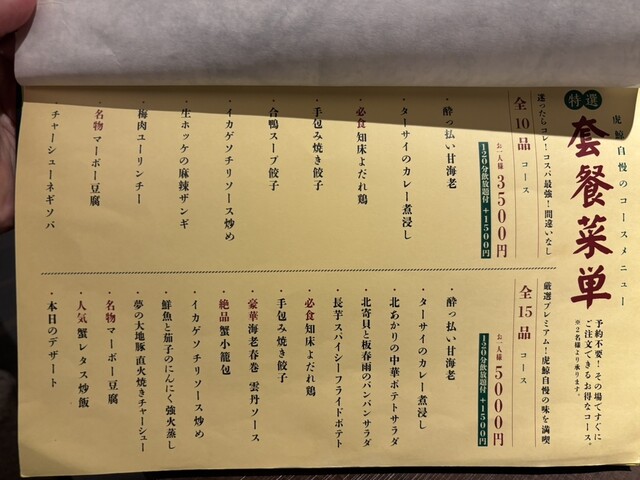 虎鯨自慢のコースメニュー
特選
套餐菜単
予約不要!その場ですぐに
ご注文できるお得なコース。
※2名様より承ります。
迷ったらコレ!コスパ最強!間違いなし
全10品 コース
お一人様 3500円
120分飲放題付 +1500円
・酔っ払い甘海老
・ターサイのカレー煮浸し
・必食 知床よだれ鶏
・手包み焼き餃子
・合鴨スープ餃子
・イカゲソチリソース炒め
・生ホッケの麻辣ザンギ
・梅肉ユーリンチー
・名物 マーボー豆腐
・チャーシューネギソバ
厳選プレミアム!虎鯨自慢の味を満喫
全15品 コース
お一人様 5000円
120分飲放題付 +1500円
・酔っ払い甘海老
・ターサイのカレー煮浸し
・北あかりの中華ポテトサラダ
・北寄貝と板春雨のバンバンサラダ
・長芋スパイシーフライドポテト
・必食 知床よだれ鶏
・手包み焼き餃子
・豪華 海老春巻 雲丹ソース
・絶品 蟹小籠包
・イカゲソチリソース炒め
・鮮魚と茄子のにんにく強火蒸し
・夢の大地豚 直火焼きチャーシュー
・名物 マーボー豆腐
・人気 蟹レタス炒飯
・本日のデザート